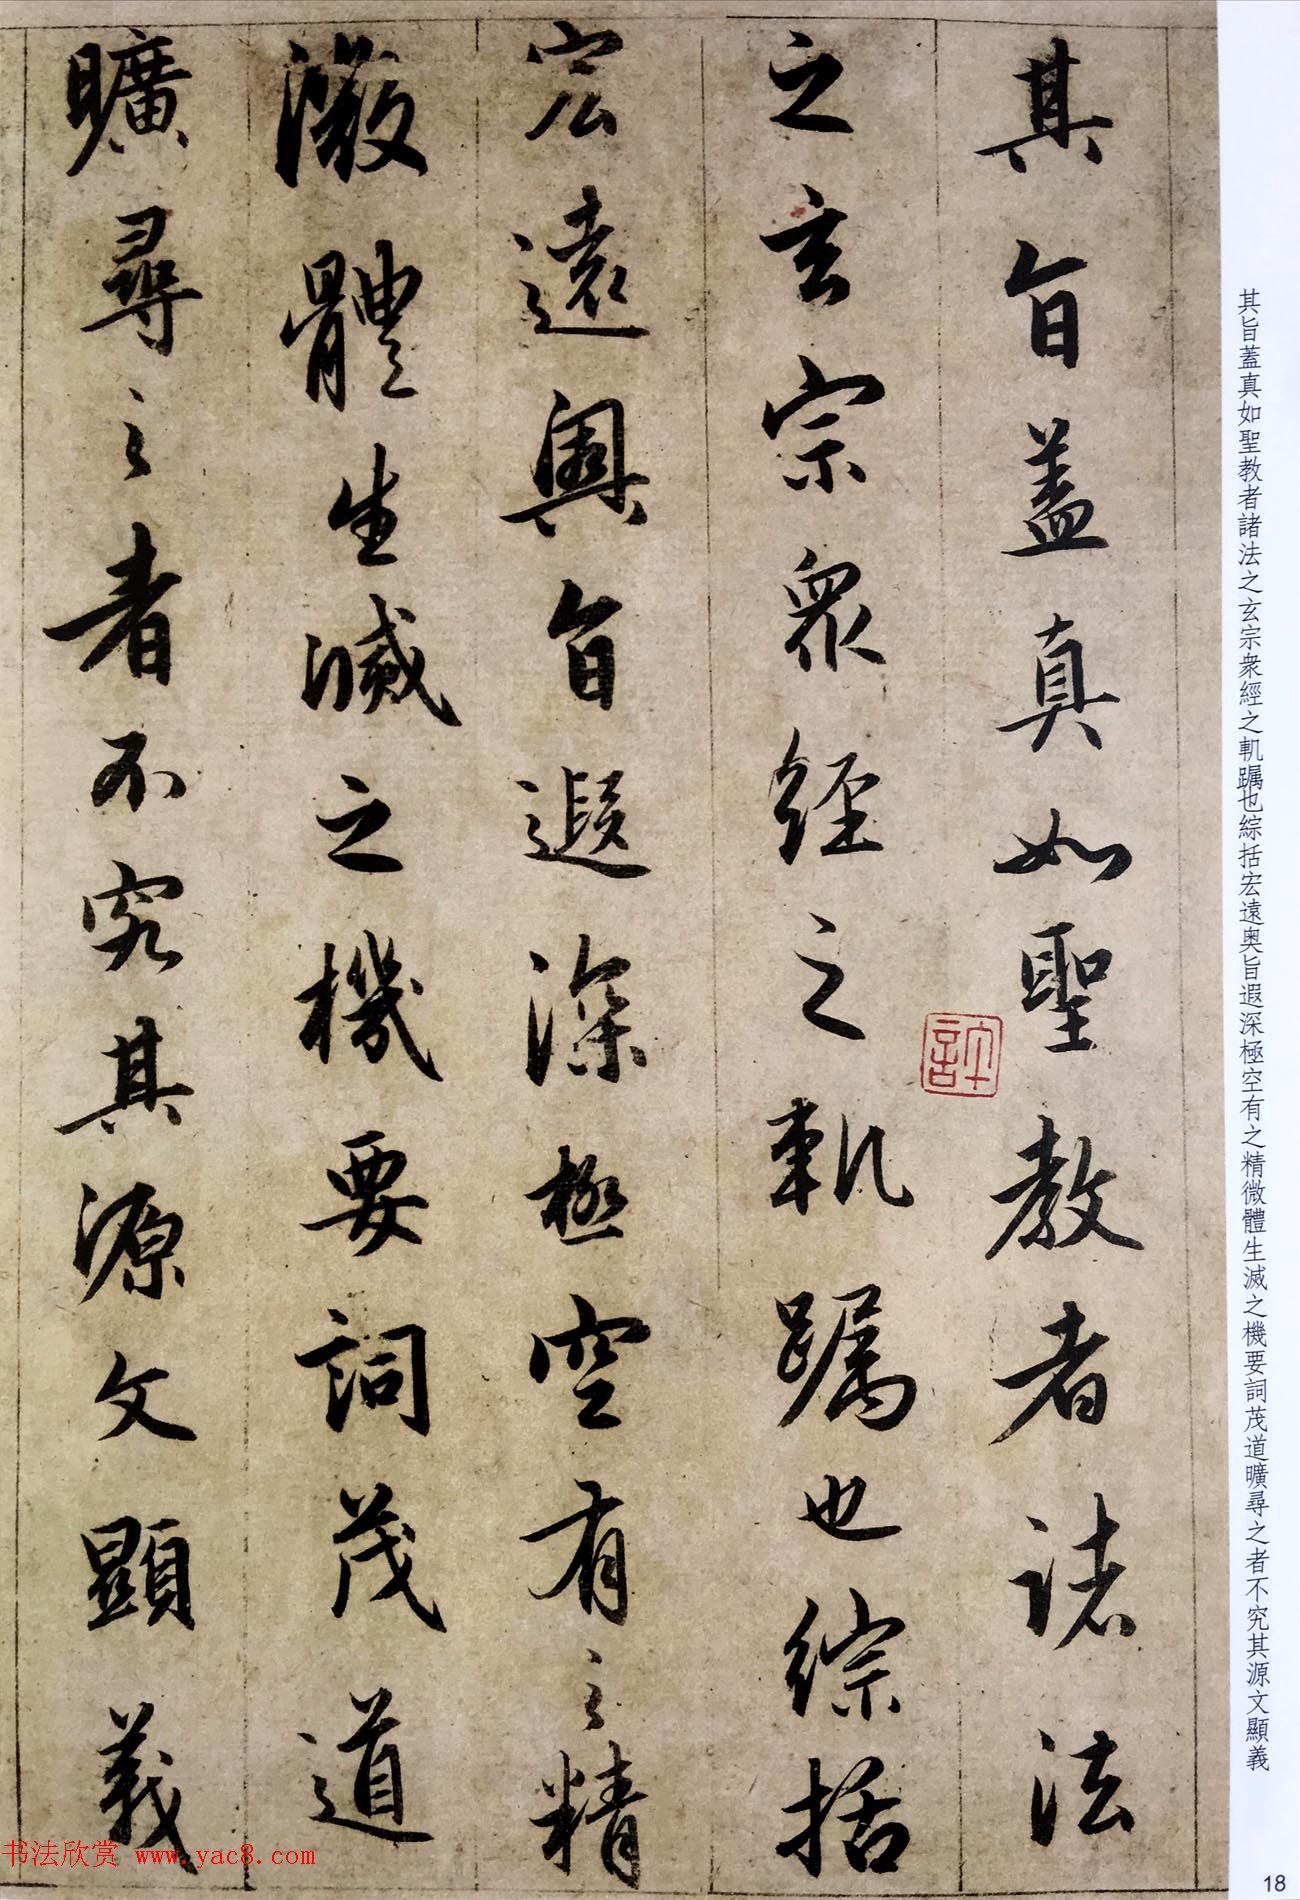 其旨蓋真如聖教者諸法之玄宗衆經之軌躅也綜括宏遠奧旨遐深極空有之精微體生滅之機要詞茂道曠尋之者不究其源文顯義
其旨蓋真如聖教者諸法
之玄宗衆經之軌躅也綜括
宏遠奧旨遐深極空有之精
微體生滅之機要詞茂道
曠尋之者不究其源文顯義
18
书法欣赏 www.yac8.com